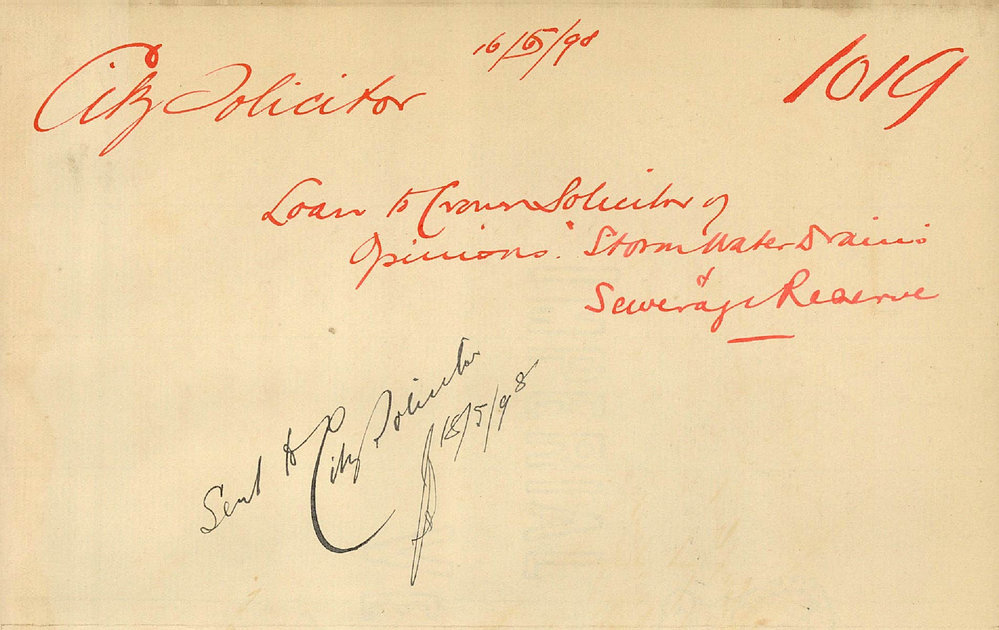 16/5/98
City Solicitor
1019
Loan to Crown Solicitor of
Opinions. Storm Water Drains
&
Sewerage Reserve
Sent to City Solicitor
18/5/98